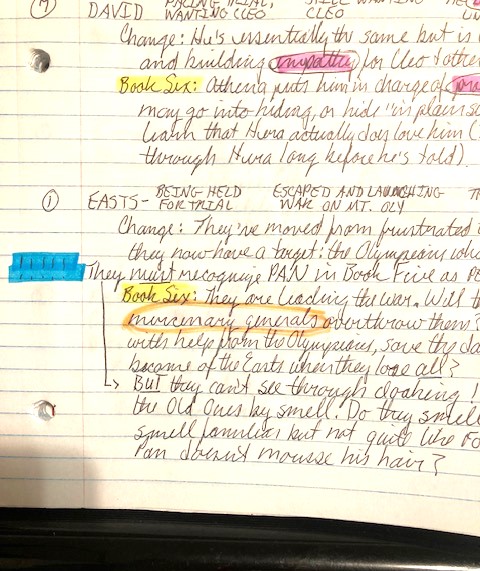 ⑦ DAVID FACING TRIAL, STILL WANTING
WANTING CLEO CLEO
Change: He's essentially the same but is
and building empathy for Cleo + othe
Book Six: Athena puts him in charge of pro
may go into hiding, or hide "in plain s
learn that Hera actually does love him (
through Hera long before he's told).
① EASTS- BEING HELD ESCAPED AND LAUNCHING
FOR TRIAL WAR ON MT. OLY
Change: They've moved from frustrated
they now have a target: the Olympeians who
They must recognize PAN in Book Five as
Book Six: They are leading the war. Will t
mercenary generals overthrow them?
with help from the Olympeians, save the da
become of the Easts when they lose all?
↳ BUT they can't see through cloaking!
the Old Ones by smell. Do they smell
smell familiar but not quite like
Pan doesn't mousse his hair?